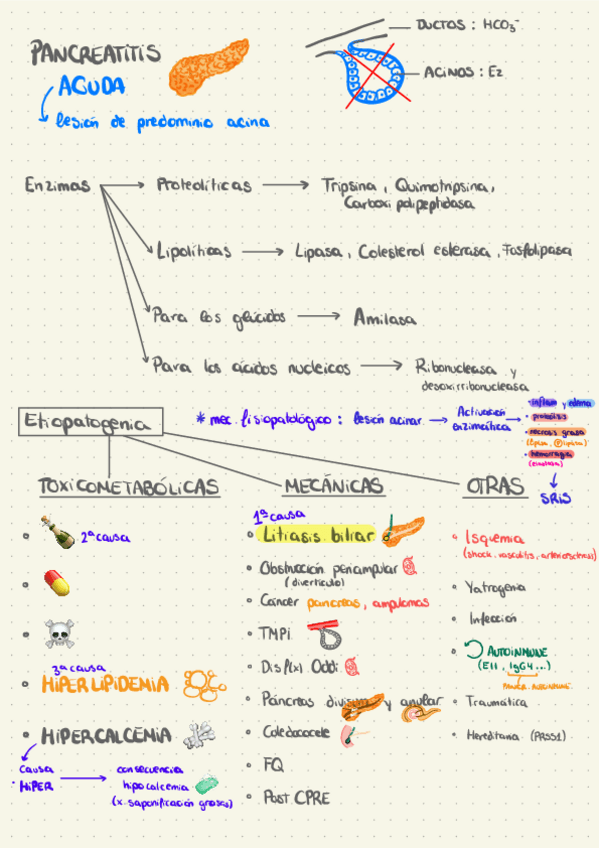 DUCTOS : HCO3⁻
PANCREATITIS
AGUDA
ACINOS : Ez
lesión de predominio acina
Enzimas
Proteolíticas
Tripsina, Quimotripsina,
Carboxi polipeptidasa
Lipolíticas
Lipasa, Colesterol esterasa, Fosfolipasa
Para los glúcidos
Amilasa
Para los ácidos nucleicos
Ribonucleasa y
desoxirribonucleasa
Etiopatogenia
* mec. fisiopatológico : lesión acinar
Activación
enzimática
inflam y edema
proteólisis
necrosis grasa
hemorragia
SRIS
TOXICOMETABÓLICAS
MECÁNICAS
OTRAS
2ª causa
1ª causa
Litiasis biliar
Isquemia
(shock, vasculitis, arteriosclerosis)
Obstrucción periampular
(divertículo)
Yatrogenia
Cáncer páncreas, ampulomas
Infección
TMPI
AUTOINMUNE
(EII, IgG4...)
3ª causa
HIPERLIPIDEMIA
Disf(x) Oddi
Páncreas divisum y anular
Traumática
HIPERCALCEMIA
Coledococele
Hereditaria (PRSS1)
causa
HIPER
consecuencia
hipocalcemia
(x. saponificación grasas)
FQ
Post CPRE